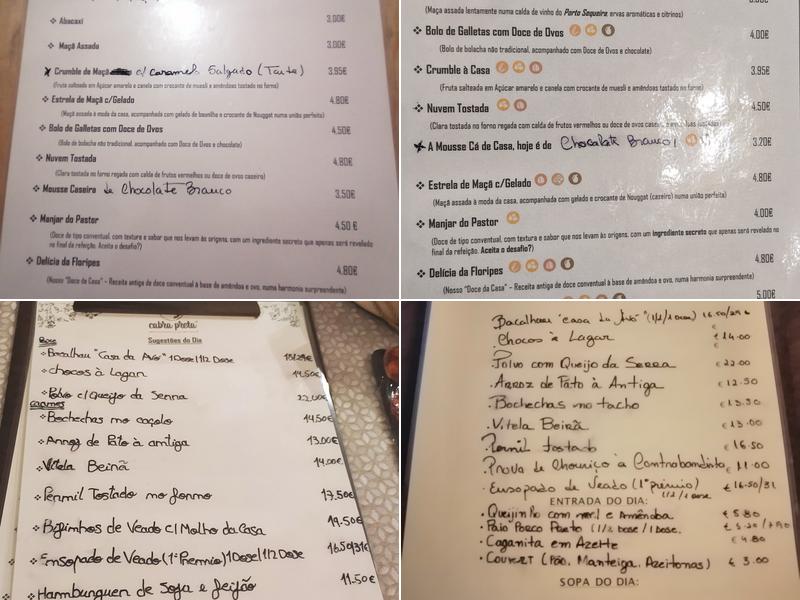 Abacaxi 3.00€
Maçã Assada 3.00€
Crumble de Maçã c/ caramelo Salgado (Tarte) 3.95€
(Fruta salteada em Açúcar amarelo e canela com crocante de muesli e amêndoas tostado no forno)
Estrela de Maçã c/Gelado 4.80€
(Maçã assada à moda da casa, acompanhada com gelado de baunilha e crocante de Nougat numa união perfeita)
Bolo de Galletas com Doce de Ovos 4,50€
(Bolo de bolacha não tradicional, acompanhado com Doce de Ovos e chocolate)
Nuvem Tostada 4,80€
(Clara tostada no forno regada com calda de frutos vermelhos ou doce de ovos caseiro)
Mousse Caseira de Chocolate Branco 3,50€
Manjar do Pastor 4,50 €
(Doce de tipo conventual, com textura e sabor que nos levam às origens, com um ingrediente secreto que apenas será revelado
no final da refeição. Aceita o desafio?)
Delícia da Floripes 4,80€
(Nosso "Doce da Casa" – Receita antiga de doce conventual à base de amêndoa e ovo, numa harmonia surpreendente)
(Maçã assada lentamente numa calda de vinho do Porto Sequeira ervas aromáticas e citrinos)
Bolo de Galletas com Doce de Ovos 4,00€
(Bolo de bolacha não tradicional, acompanhado com Doce de Ovos e chocolate)
Crumble à Casa 3,95€
(Fruta salteada em Açúcar amarelo e canela com crocante de muesli e amêndoas tostado no forno)
Nuvem Tostada 4,50€
(Clara tostada no forno regada com calda de frutos vermelhos ou doce de ovos
A Mousse Cá de Casa, hoje é de Chocolate Branco! 3,20€
Estrela de Maçã c/Gelado 4,80€
(Maçã assada à moda da casa, acompanhada com gelado e crocante de Nougat (caseiro) numa união perfeita)
Manjar do Pastor 4,00€
(Doce de tipo conventual, com textura e sabor que nos levam às origens, com um ingrediente secreto que apenas será revelado no
final da refeição. Aceita o desafio?)
Delícia da Floripes 4,80€
(Nosso "Doce da Casa" – Receita antiga de doce conventual à base de amêndoa e ovo, numa harmonia surpreendente)
5,00€
cabra preta
Sugestões do Dia
Bacalhau "Casa da Avó" 1Dose/1/2 Dose
chocos à Lagar 14.50€
Polvo c/Queijo da Serra 22.00€
carnes
Bochechas no caçolo 14.50€
Arroz de Pato à antiga 13.00€
Vitela Beirã 14.00€
Pernil Tostado no forno 17.50€
Bifinhos de Veado c/Molho da Casa 19.50€
Ensopado de Veado (1º Premio) 1Dose/1/2 Dose 16.50/31€
Hamburguer de soja e feijão 11.50€
Bacalhau "casa da Avó" (1/2/1 dose) 16.50/29 €
Chocos à Lagar € 14.00
Polvo com Queijo da Serra € 22.00
Arroz de Pato à Antiga € 12.50
Bochechas no tacho € 13.50
Vitela Beirã € 13.00
Pernil tostado € 16.50
Prova de Chouriço à Contrabandista € 11.00
Ensopado de Veado (1º prémio) € 16.50/31
1/2 / 1 dose
ENTRADA DO DIA:
Queijinho com mel e Amêndoa € 5.80
Paio Porco Preto (1/2 Dose / 1 Dose.
Caganita em Azeite € 4.80
Couvert (Pão, Manteiga, Azeitonas) € 3.00
SOPA DO DIA: